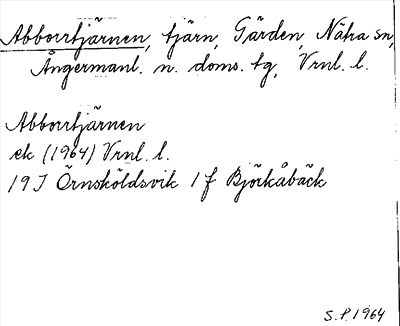 Abborrtjärnen, tjärn, Gärden, Nätra sn,
Ångermanl. n. doms. tg, Vrnl. l.
Abborrtjärnen
ek (1964) Vrnl. l.
19J Örnsköldsvik 1f Björkåbäck
S.P. 1964